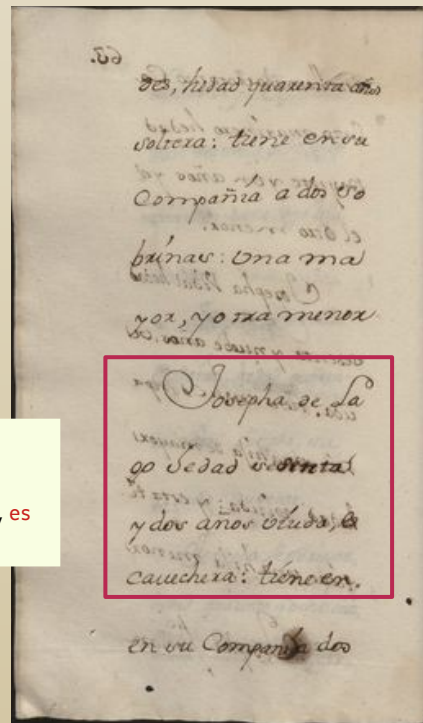 63.
des, hedad quarenta años
soltera: tiene en su
Compañia a dos so
brinas: una ma
yor, y otra menor
Josepha de La
go hedad sesenta
y dos años viuda, es
cavechera: tiene en
en su Compañia dos
, es